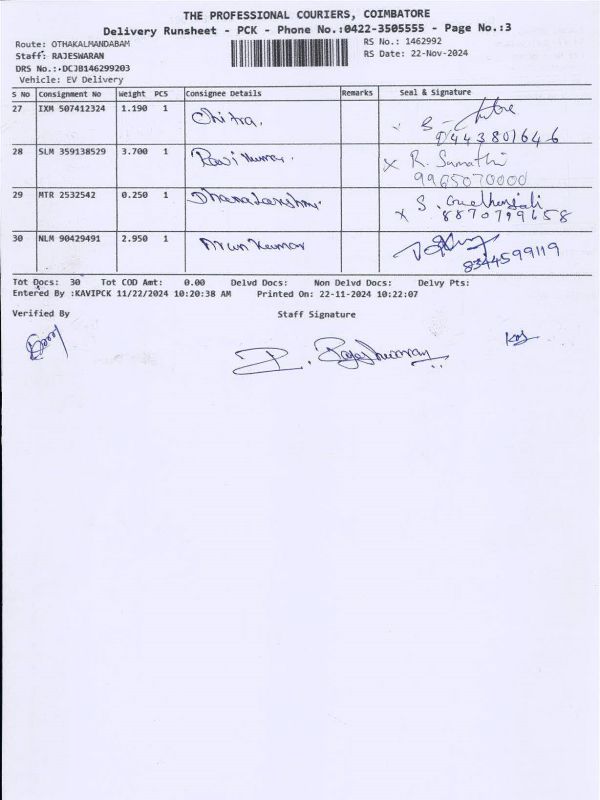 THE PROFESSIONAL COURIERS, COIMBATORE
Delivery Runsheet - PCK - Phone No.:0422-3505555 - Page No.:3
Route: OTHAKALMANDABAM RS No.: 1462992
Staff: RAJESWARAN RS Date: 22-Nov-2024
DRS No.:-DCJB146299203
Vehicle: EV Delivery
S No Consignment No Weight PCS Consignee Details Remarks Seal & Signature
27 IXM 507412324 1.190 1 Chitra.
9443801646
28 SLM 359138529 3.700 1 Ravi Kumar. X R. Sumathi
9965070000
29 MTR 2532542 0.250 1 Dhanalakshmi. X S. Geethanjali
8870799658
30 NLM 90429491 2.950 1 Arun Kumar
8344599119
Tot Docs: 30 Tot COD Amt: 0.00 Delvd Docs: Non Delvd Docs: Delvy Pts:
Entered By :KAVIPCK 11/22/2024 10:20:38 AM Printed On: 22-11-2024 10:22:07
Verified By Staff Signature